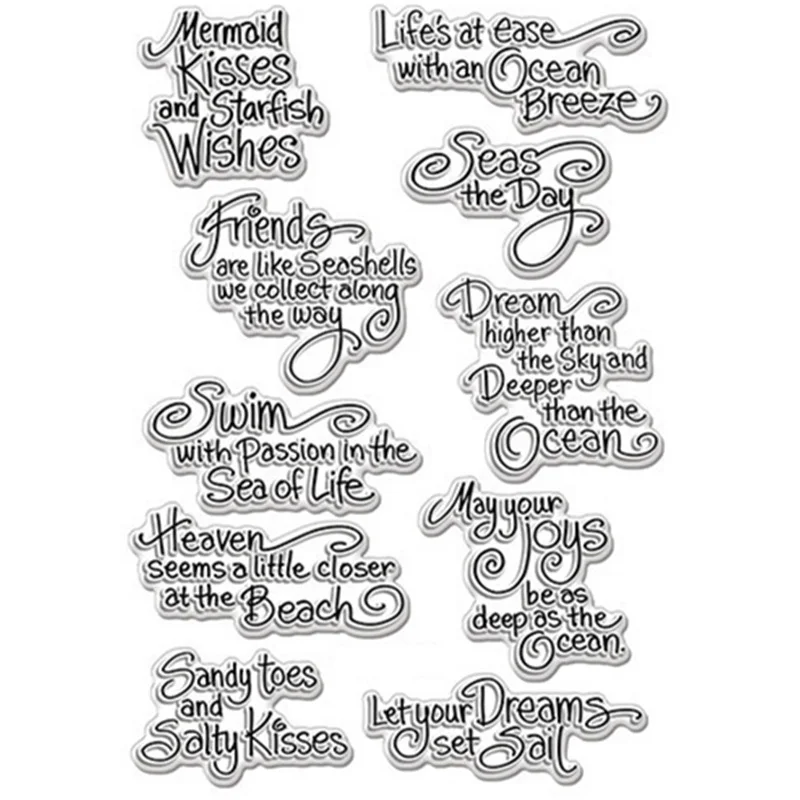 Mermaid
Kisses
and Starfish
Wishes
Life's at ease
with an Ocean
Breeze
Seas
the Day
Friends
are like Seashells
we collect along
the way
Dream
higher than
the Sky and
Deeper
than the
Ocean
Swim
with Passion in the
Sea of Life
Heaven
seems a little closer
at the Beach
May your
joys
be as
deep as the
Ocean.
Sandy toes
and
Salty Kisses
Let your Dreams
set Sail